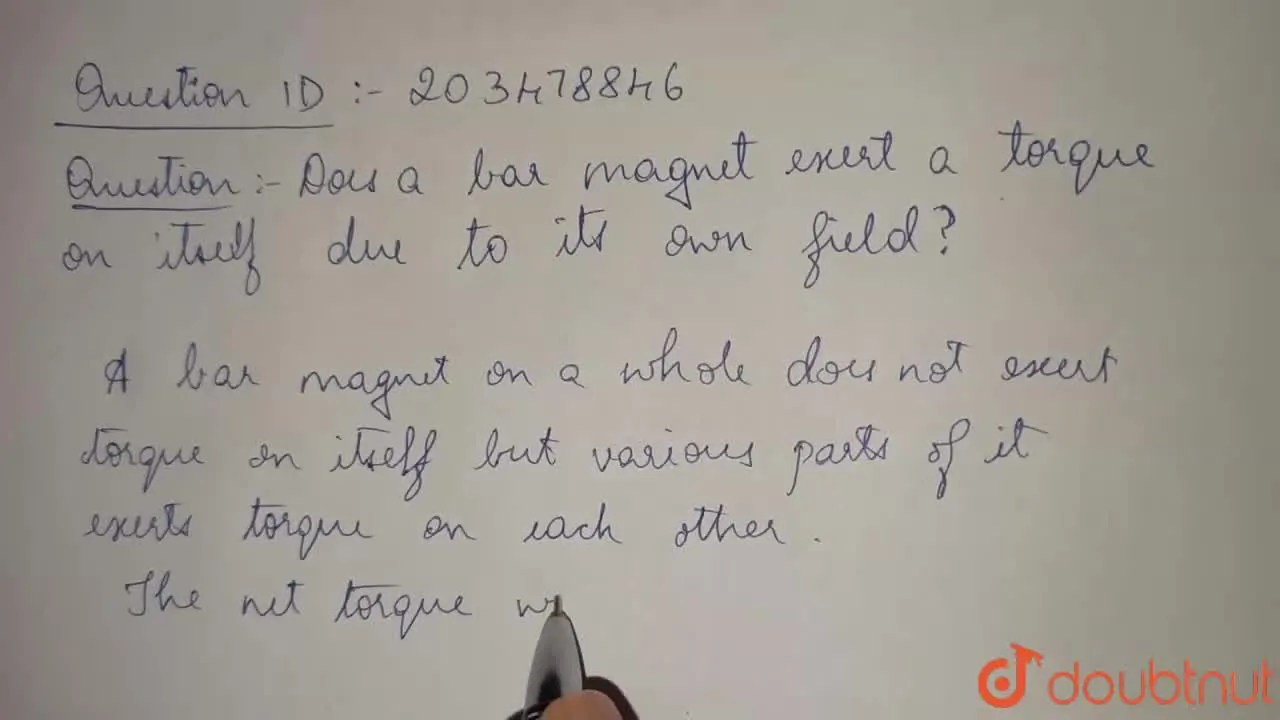 Question ID :- 203478846
Question :- Does a bar magnet exert a torque
on itself due to its own field?
A bar magnet on a whole does not exert
torque on itself but various parts of it
exerts torque on each other.
The net torque
doubtnut